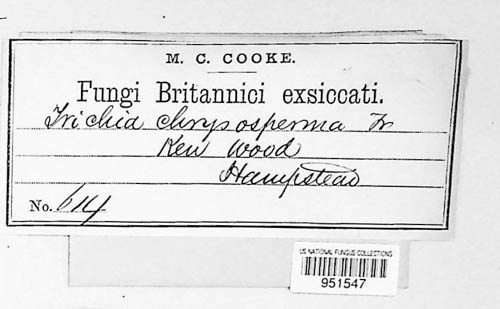 M. C. COOKE.
Fungi Britannici exsiccati.
Trichia chrysosperma Fr
Ken Wood
Hampstead
No. 614
US NATIONAL FUNGUS COLLECTIONS
951547